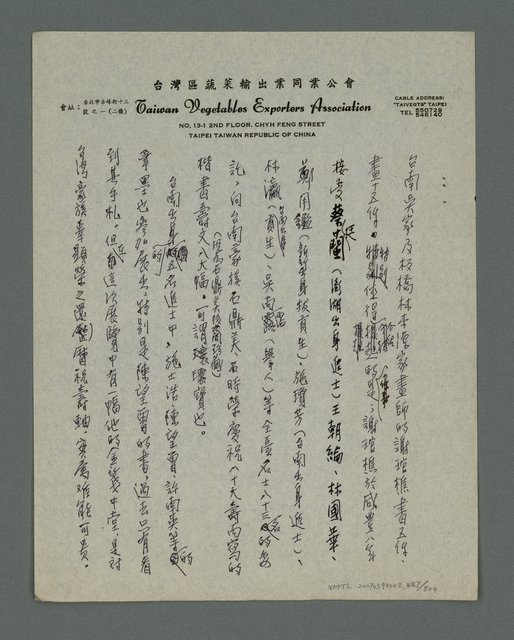 台灣區蔬菜輸出業同業公會
會址：台北市赤峰街十三號之一（二樓）
Taiwan Vegetables Exporters Association
NO. 13-1 2ND FLOOR. CHYH FENG STREET
TAIPEI TAIWAN REPUBLIC OF CHINA
CABLE ADDRESS:
"TAIVEGTS" TAIPEI
TEL 550729
548140
台南吳家及板橋林本源家畫師的謝琯樵書五件、
畫十五件。特別值得一提的是：謝琯樵於咸豐八年
接受蔡廷蘭（澎湖出身進士）王朝綸、林國華、
鄭用鑑（新竹出身拔貢生）、施瓊芳（台南出身進士）、
林瀛（台南出身貢生）、吳尚霑（舉人）等全臺名士八十三名的委
託，向台南豪族石鼎美石時榮慶祝八十大壽而寫的
楷書壽文八大幅。可謂瓌寶也。
台南出身的五名進士中，施士浩陳望曾許南英等的
筆墨也參加展出，特別是陳望曾的書，過去只有看
到其手札，但在這次展覽中有一幅他的金箋中堂，是對
台灣豪族辜顯榮之還曆祝壽軸，實屬難能可貴。
NMTL 20070390002, 487/504